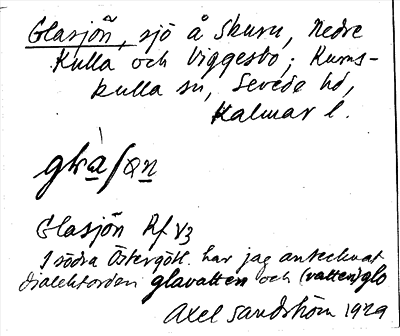 Glasjön, sjö å Skuru, Nedre
Kulla och Viggesbo; Kums-
kulla sn, Sevede hd,
Kalmar l.
Glasjön Rf V3
I södra Östergötl. har jag antecknat
dialektorden glavatten och (vatten)glo
Axel Sandström 1929